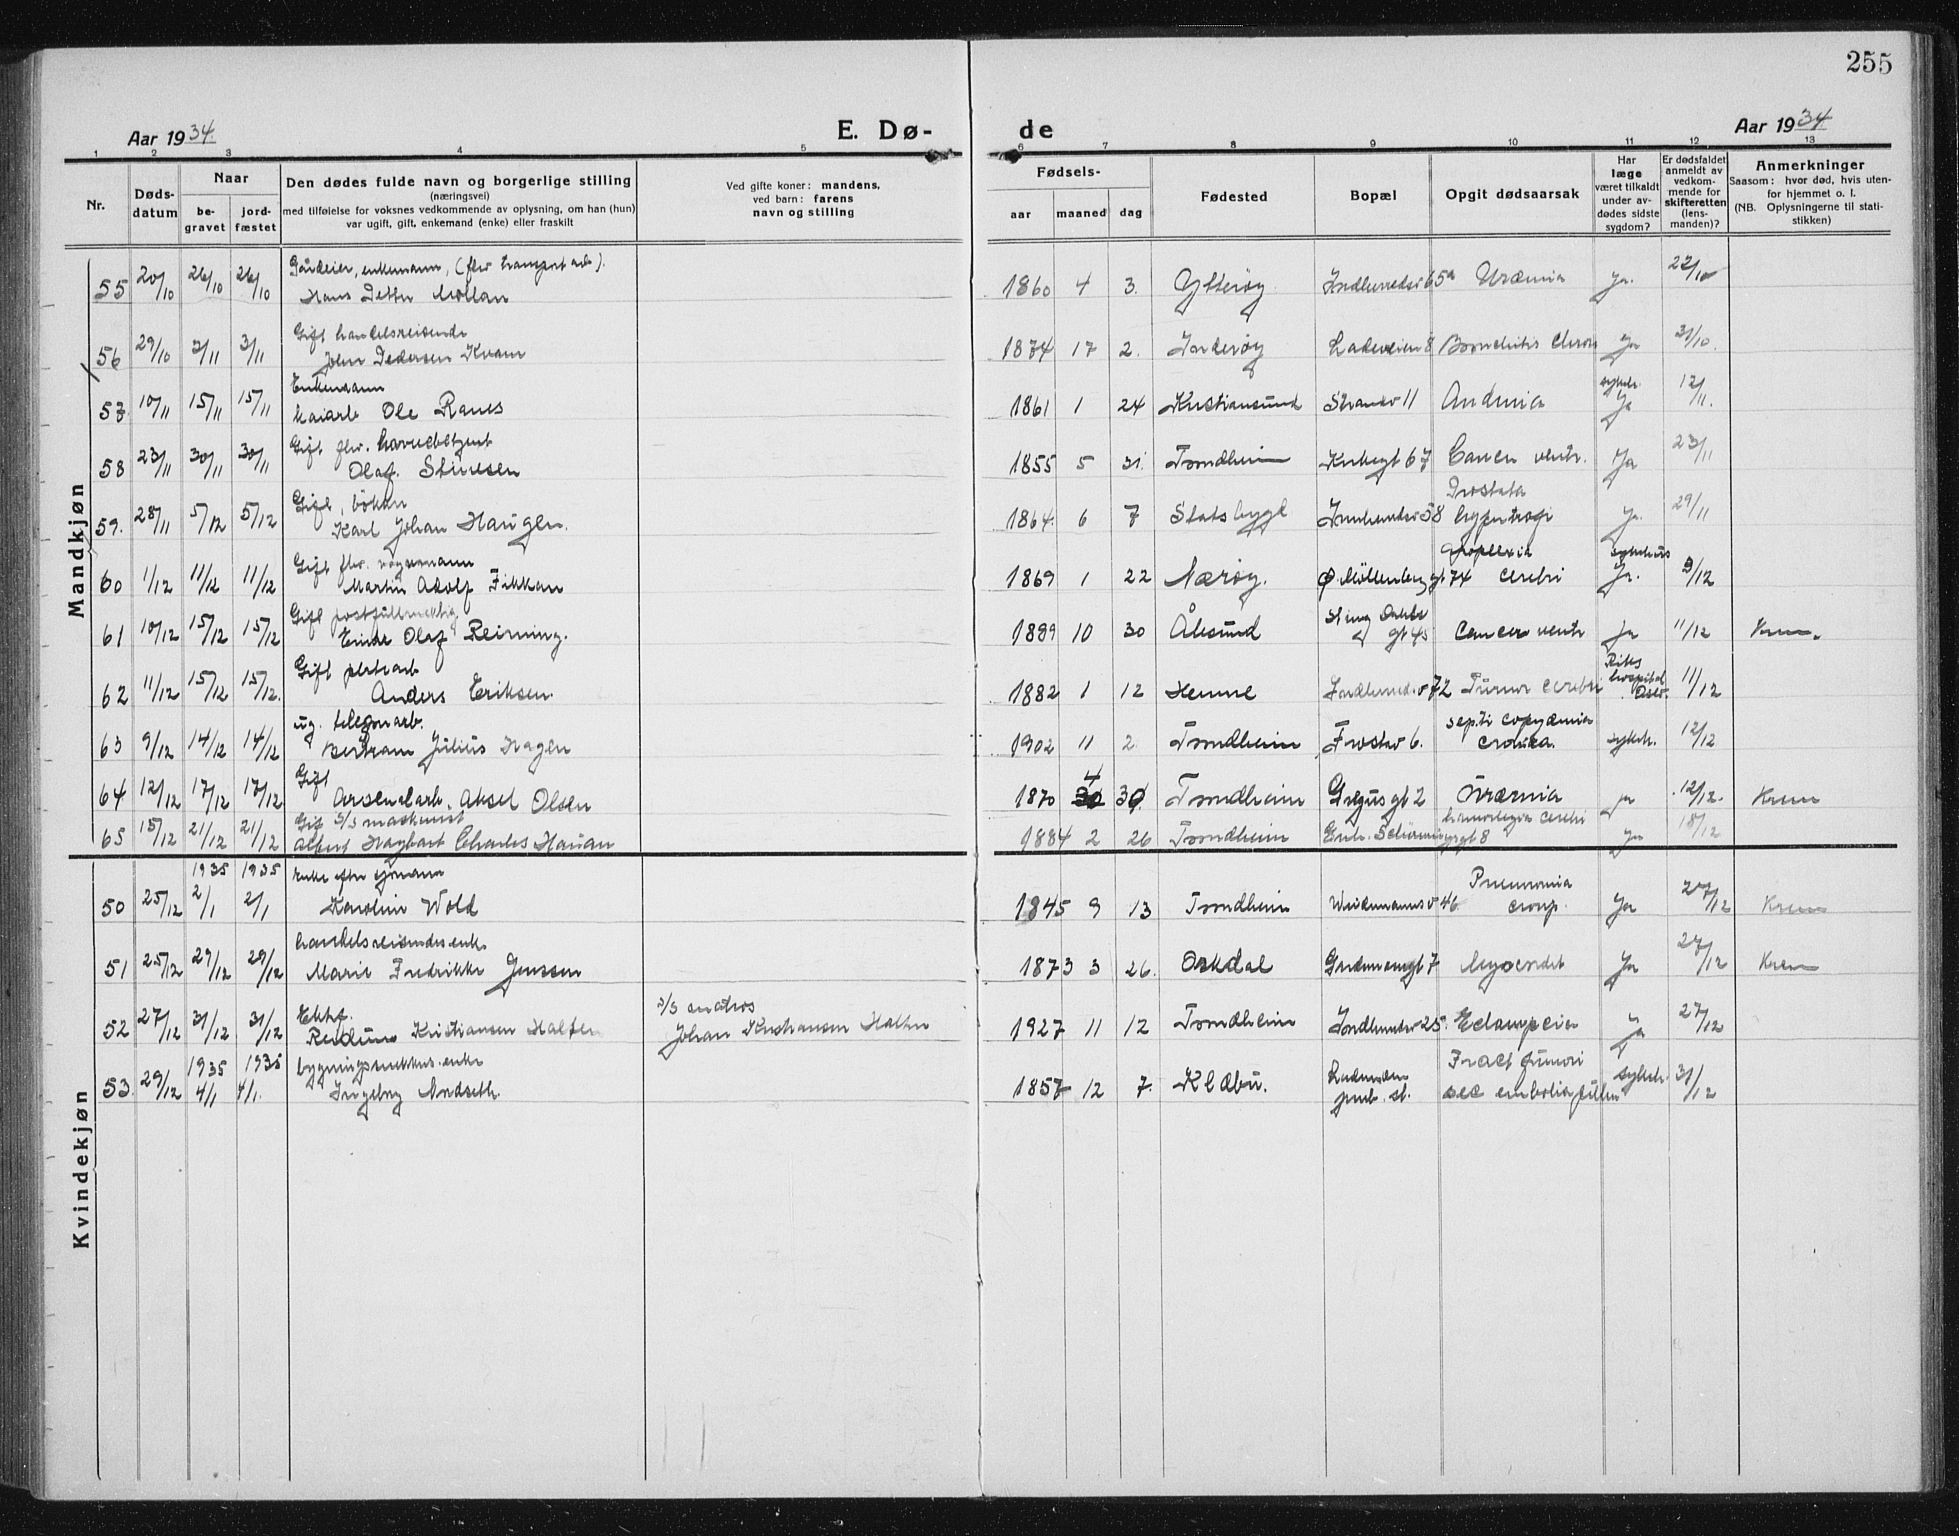 255
Aar 1934.
E. Dø-
de
Aar 1934
1 2 3 4 5 6 7 8 9 10 11 12 13
Nr.
Døds-
datum
Naar
be-
gravet
jord-
fæstet
Den dødes fulde navn og borgerlige stilling
(næringsvei)
med tilføielse for voksnes vedkommende av oplysning, om han (hun)
var ugift, gift, enkemand (enke) eller fraskilt
Ved gifte koner: mandens,
ved barn: farens
navn og stilling
Fødsels-
aar maaned dag
Fødested
Bopæl
Opgit dødsaarsak
Har
læge
været tilkaldt
under av-
dødes sidste
sygdom?
Er dødsfaldet
anmeldt av
vedkom-
mende for
skifteretten
(lens-
manden)?
Anmerkninger
Saasom: hvor død, hvis uten-
for hjemmet o. l.
(NB. Oplysningerne til stati-
stikken)
Mandkjøn
Gårdeier, enkemann, (fhv. transport arb).
55 20/10 26/10 26/10 Hans Petter Mollan 1860 4 3. Ytterøy 65a Uræmia Ja. 22/10
Gift handelsreisende
56 29/10 3/11 3/11 John Pedersen Kvam 1874 17 2. Inderøy Ladeveien 8 31/10.
Enkemann
57 10/11 15/11 15/11 Ole Ranes 1861 1 24 Kristiansund Strandv 11 Ja 12/11.
Gift fhv.
58 23/11 30/11 30/11 Olaf 1855 5 31. Trondheim Kirkegt 67 Cancer ventr. Ja 23/11
Gift,
Prostata
59. 28/11 5/12 5/12 Karl Johan Haugen. 1864. 6 7 Statsbygd 58 hypertrofi Ja. 29/11
Gift fhv. vognmann
apoplexia sykehus
60 1/12 11/12 11/12 Martin Adolf Fikkan 1869 1 22 Nærøy. Ø. Möllenberg gt 74 cerebri Ja. 3/12
Gift postfullmektig
61 10/12 15/12 15/12 Einar Olaf Reirning. 1889 10 30 Ålesund gt 45 Cancer ventr Ja 11/12 Krem.
Gift
Riks
hospital
Oslo.
62 11/12 15/12 15/12. Anders Eriksen 1882 1 12 Hemne 72 Tumor cerebri 11/12
ug. telegrafarb.
63 9/12 14/12 14/12 Bertram Julius Hagen 1902 11 2. Trondheim Frostav 6. cronica. sykeh. 12/12
Gift
4
64 12/12 17/12 17/12 Arsenalarb. Aksel Olsen 1870 30 Trondheim Gregus gt 2 Uræmia ja 12/12. Krem
Gift S/S maskinist
hæmorhagia cerebri
65 15/12 21/12 21/12 Albert Hagbart Charles Haugan 1884 2 26 Trondheim gt 8 Ja 18/12
Kvindekjøn
1935 1935 enke efter sjömann
Pneumonia
50 25/12 2/1 2/1 Karoline Wold 1845 9 13 Trondheim Weidemannsv 46 croup. Ja 27/12 Krem
handelsreisendes enke
51 25/12 29/12 29/12 Marie Fredrikke Jenssen 1873 3 26. Orkdal 7 Myocardit Ja 27/12 Krem
Ekhf.
S/S matros
52 27/12 31/12 31/12 Reidun Kristiansen Halten Johan Kristiansen Halten 1927 11 12 Trondheim 25. Eclampsia Ja 27/12
1935 1935 enke
Fract femori
53. 29/12 4/1 4/1. Ingeborg Andseth. 1857 12 7. Klæbu. sec embolia sykeh. 31/12